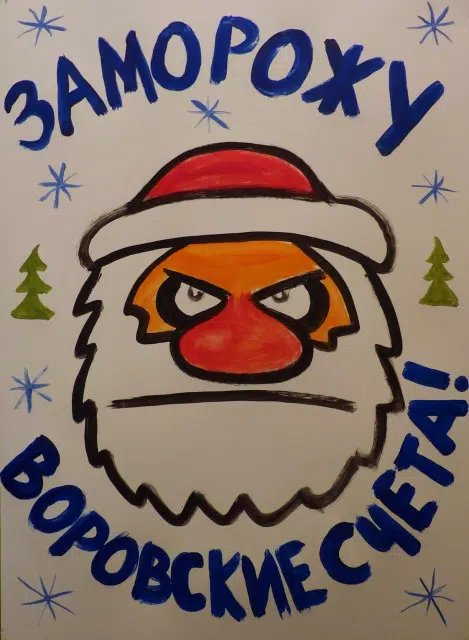 ЗАМОРОЖУ
ВОРОВСКИЕ СЧЕТА!